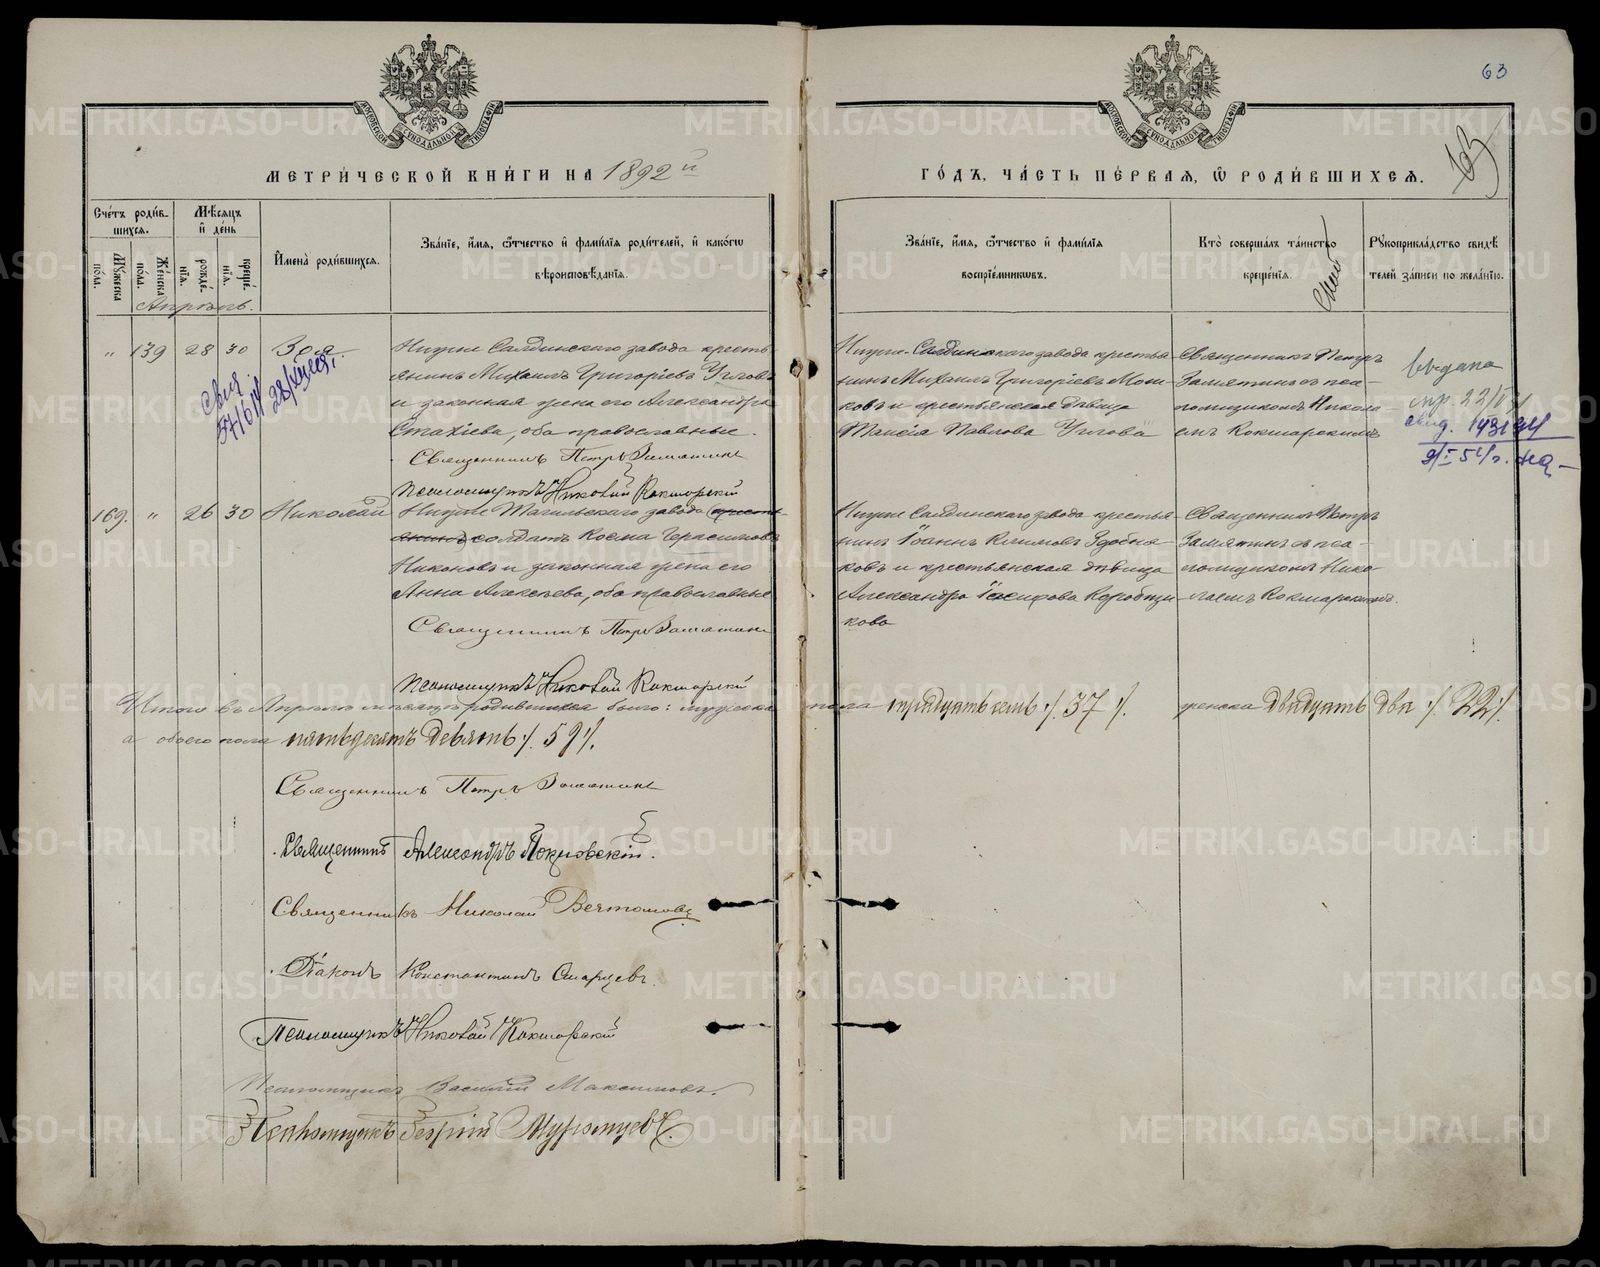 63
МЕТРИЧЕСКОЙ КНИГИ НА 1892 й
ГОДЪ, ЧАСТЬ ПЕРВАЯ, Ѡ РОДИВШИХСЯ.
Счетъ родив-
шихся.
Мужеска пола.
Женска пола.
Мѣсяцъ и день
рожденія.
крещенія.
Имена родившихся.
Званіе, имя, отчество и фамилія родителей, и какогѡ
вѣроисповѣданія.
Званіе, имя, отчество и фамилія
воспріемниковъ.
Кто совершалъ таинство
крещенія.
Рукоприкладство свидѣ
телей записи по желанію.
Апрѣль.
" 139 28 30 Зоя
Нижне Салдинскаго завода кресть-
янинъ Михаилъ Григоріевъ Углов
и законная жена его Александра
Стахіева, оба православные
Священникъ Петръ Замятинъ
Псаломщикъ Николай Кокшарскій
Нижне-Салдинскаго завода крестья
нинъ Михаилъ Григоріевъ
ковъ и крестьянская дѣвица
Таисія Павлова Углова
Священникъ Петръ
Замятинъ съ пса-
ломщикомъ Никола-
емъ Кокшарскимъ
выдана
свид.
169. " 26 30 Николай
Нижне Тагильскаго завода кресть-
янинъ солдатъ Косма Герасимовъ
Никоновъ и законная жена его
Анна Алексѣева, оба православные
Священникъ Петръ Замятинъ
Псаломщикъ Николай Кокшарскій
Нижне Салдинскаго завода крестья
нинъ Іоаннъ Климовъ
ковъ и крестьянская дѣвица
Александра
кова
Священникъ Петръ
Замятинъ съ пса-
ломщикомъ Нико-
лаемъ Кокшарскимъ.
Итого въ Апрѣлѣ мѣсяцѣ родившихся было: мужеска пола тридцать семь ./. 37 ./. женска двадцать два ./. 22 ./.
а обоего пола пятьдесятъ девять ./. 59 ./.
Священникъ Петръ Замятинъ
Священникъ Александръ Покровскій.
Священникъ Николай
Діаконъ Константинъ
Псаломщикъ Николай Кокшарскій
Псаломщикъ Василій Максимовъ.
Псаломщикъ Георгій Муромцевъ.
METRIKI.GASO-URAL.RU